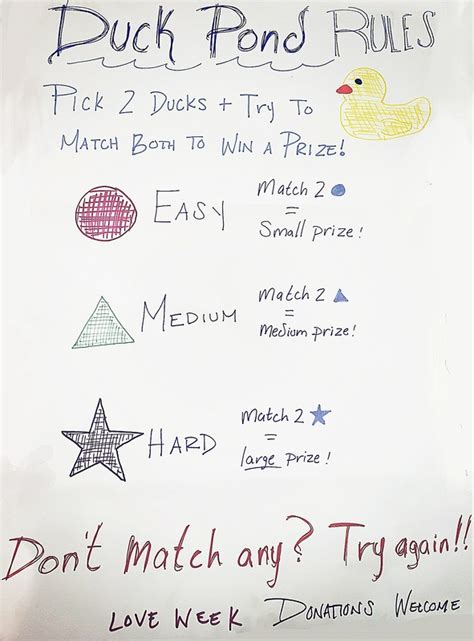 Duck Pond RULES
PICK 2 DUCKS + TRY TO
MATCH BOTH TO WIN A PRIZE!
EASY
Match 2
=
Small prize!
MEDIUM
Match 2
=
Medium prize!
HARD
Match 2
=
large prize!
Don't Match any? Try again!!
LOVE WEEK DONATIONS WELCOME